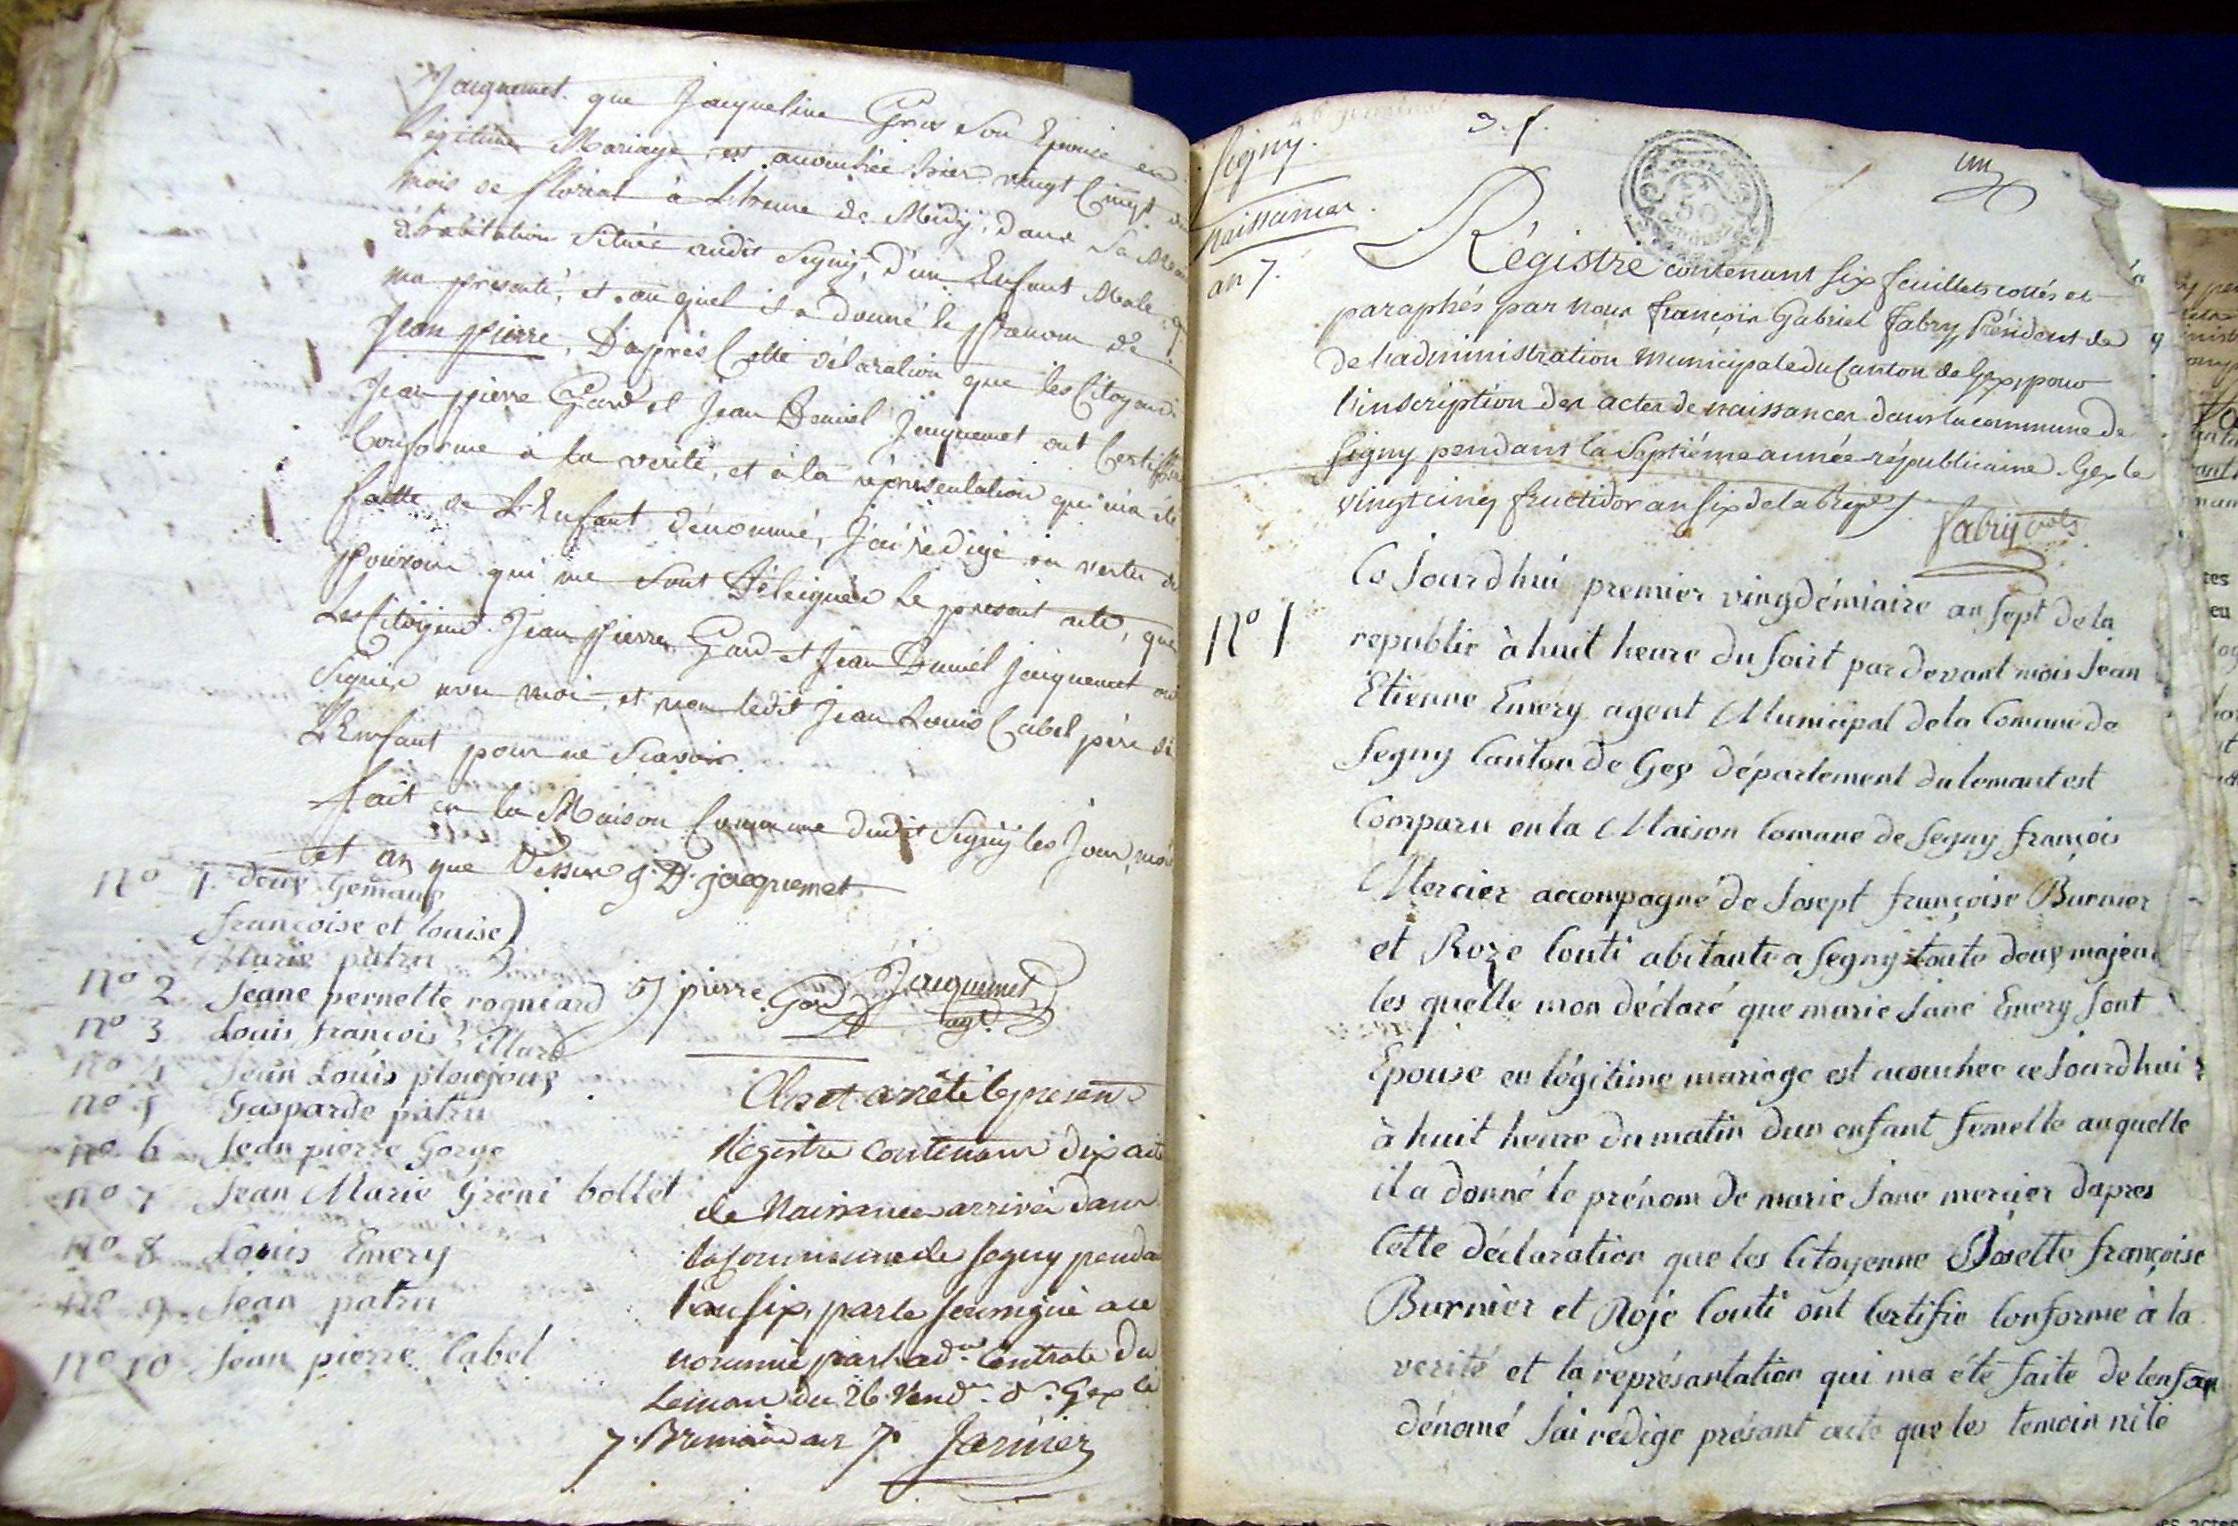 Jaquemet. que Jacqueline Gros son Epouse en
Légitime Mariage, est accouchée hier vingt Cinq du
mois de floréal à L'heure de Midy, dans Sa Maison
d'habitation Située audit Segny, d'un Enfant Male, qu'il
ma présenté, et auquel il a donné le prenom de
Jean pierre, D'après Cette déclaration que les Citoyens
Jean pierre Gard et Jean Daniel Jaquemet ont Certiffié
Conforme à la verité, et à la représentation qui m'a été
faitte de L'Enfant dénommé, J'ai rédigé en vertu des
pouvoirs qui me Sont Déleigués Le present acte, que
Les Citoyens Jean pierre Gard et Jean Daniel Jaquemet ont
Signés avec moi, et non ledit Jean Louis Cabel père de
L'Enfant pour ne Scavoir.
fait en la Maison Commune dudit Segny les Jour, mois
et an que Dessus J. D. jacquemet
no 1. deux Gemaux
francoise et louise
Marie patru
no 2 Jeane pernette rogniard
J pierre Gard
Jaquemet
agt.
no 3 Louis francois
no 4 Jean Louis
no 5 Gasparde patru
no 6 Jean pierre Gorge
no 7 Jean Marie Greni bollet
no 8 Louis Emery
no 9 Jean patru
no 10 Jean pierre Cabel
Clos et arrêté le present
Régistre contenant dix actes
de Naissances arrivées dans
la Commune de Segny pendant
l'an six, par le soussigné a ce
nommé par l'adon Centrale du
Leman du 26. Vend.re d.r Gex le
7. Brumaire an 7.
Segny.
naissances.
an 7.
3. f.
un
50
Régistre contenant six feuillets cottés et
paraphés par nous françois Gabriel Fabry Président de
de l'administration municipale du Canton de Gex, pour
l'inscription des actes de naissances dans la commune de
Segny pendant la Septiéme année républicaine. Gex le
vingt cinq fructidor an six de la Rép.
Fabry
No 1
Ce Jourdhui premier vingdémiaire an Sept de la
republic à huit heure du Soirt par devant mois Jean
Etienne Emery agent Municipal de la Comune de
Segny Canton de Gex département du lemant est
Comparu en la Maison Comune de Segny françois
Mercier accompagné de Josept françoise Burnier
et Roze Couti abitante a Segny toute deux majeur
les quelle mon déclaré que marie Jane Emery Sont
Epouse en légitime mariage est acouchee ce Jourdhui
à huit heure du matin dun enfant femelle auquelle
il a donné le prénom de marie Jane mercier dapres
Cette déclaration que les Citoyenne Josette françoise
Burnier et Roje Couti ont Certifie Conforme à la
verité et la représantation qui ma éte faite de lenfan
dénomé Jai redige présant acte que les temoin ni le